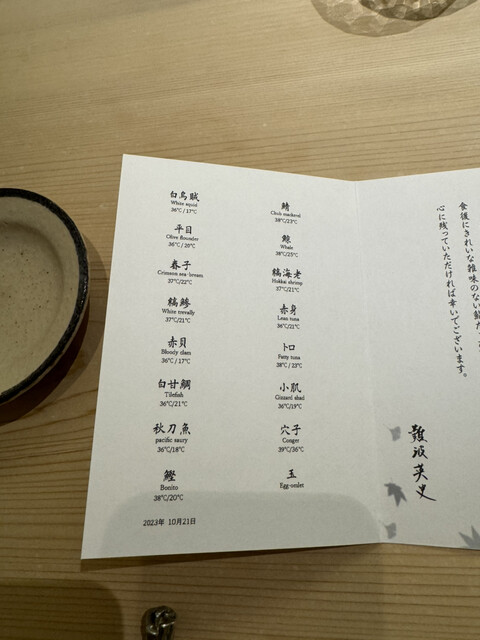 白烏賊
White squid
36℃ / 17℃
平目
Olive flounder
36℃ / 20℃
春子
Crimson sea-bream
37℃/22℃
縞鯵
White trevally
37℃/21℃
赤貝
Bloody clam
36℃ / 17℃
白甘鯛
Tilefish
36℃/21℃
秋刀魚
pacific saury
36℃/18℃
鰹
Bonito
38℃/20℃
2023年 10月21日
鯖
Chub mackerel
38℃/23℃
鯨
Whale
38℃/25℃
縞海老
Hokkai shrimp
37℃/21℃
赤身
Lean tuna
36℃/21℃
トロ
Fatty tuna
38℃ / 23℃
小肌
Gizzard shad
36℃/19℃
穴子
Conger
39℃/36℃
玉
Egg-omlet
食後にきれいな雑味のない
心に残っていただければ幸いでございます。
難波英史